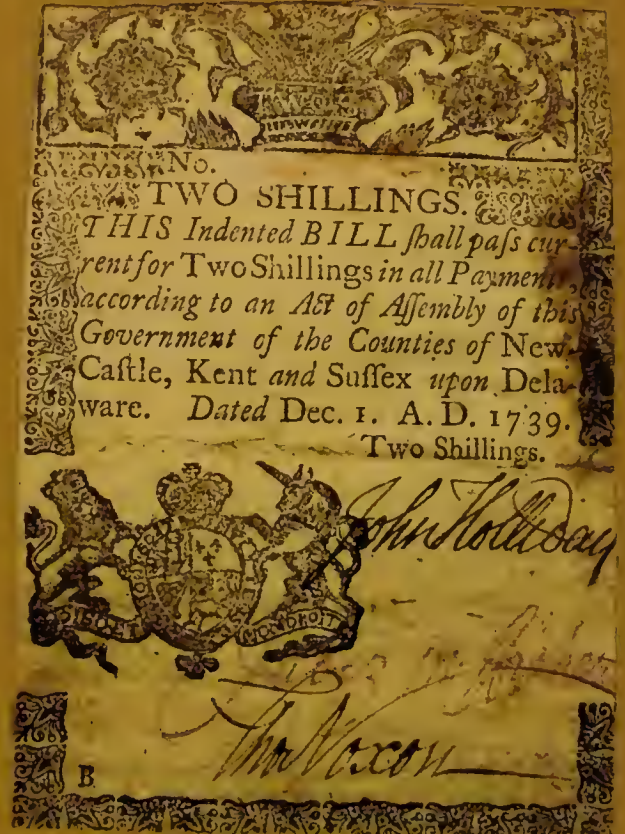 No.
TWO SHILLINGS.
THIS Indented BILL ſhall paſs cur-
rent for Two Shillings in all Payments
according to an Act of Aſſembly of this
Government of the Counties of New-
Caſtle, Kent and Suſſex upon Dela-
ware. Dated Dec. 1. A. D. 1739.
Two Shillings.
John Holliday
DIEU ET MON DROIT
Tho Noxon
B